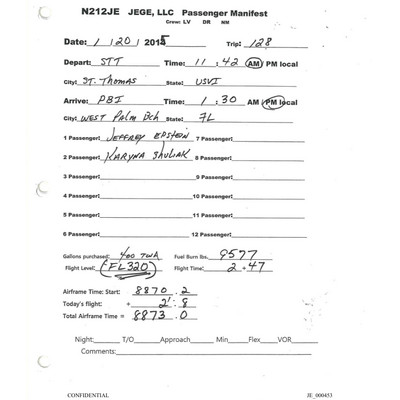 N212JE JEGE, LLC Passenger Manifest
Crew: LV DR NM
Date: 1/20/2015 Trip: 128
Depart: STT Time: 11:42 AM PM local
City: ST. Thomas State: USVI
Arrive: PBI Time: 1:30 AM PM local
City: WEST PALM BCH State: FL
1 Passenger: JEFFREY EPSTEIN 7 Passenger:
2 Passenger: KARYNA SHULIAK 8 Passenger:
3 Passenger: 9 Passenger:
4 Passenger: 10 Passenger:
5 Passenger: 11 Passenger:
6 Passenger: 12 Passenger:
Gallons purchased: 400 TWA Fuel Burn lbs. 9577
Flight Level: (FL320) Flight Time: 2+47
Airframe Time: Start: 8870.2
Today's flight: + 2.8
Total Airframe Time = 8873.0
Night: T/O Approach Min Flex VOR
Comments:
CONFIDENTIAL JE_000453